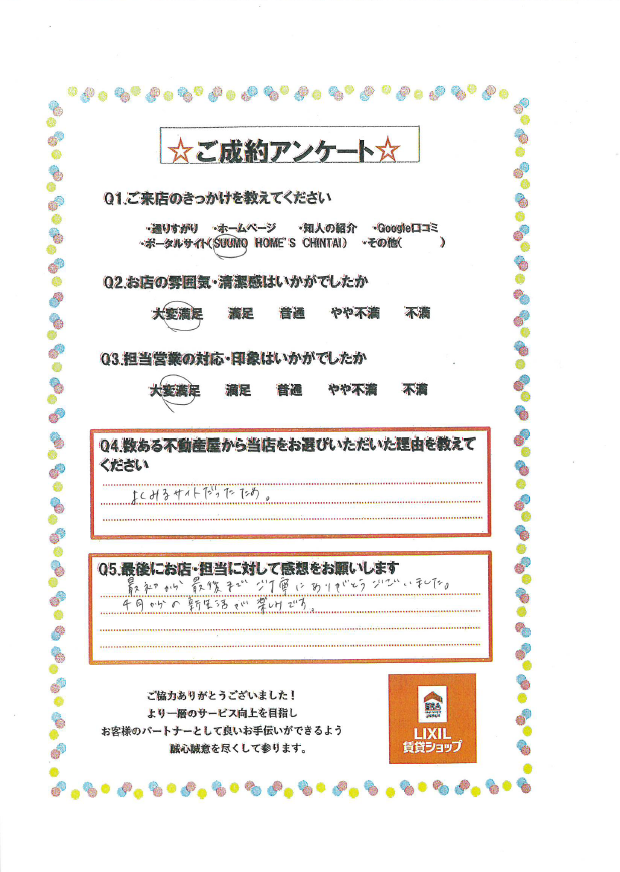 ☆ご成約アンケート☆
Q1.ご来店のきっかけを教えてください
・通りすがり ・ホームページ ・知人の紹介 ・Google口コミ
・ポータルサイト(SUUMO HOME'S CHINTAI) ・その他( )
Q2.お店の雰囲気・清潔感はいかがでしたか
大変満足 満足 普通 やや不満 不満
Q3.担当営業の対応・印象はいかがでしたか
大変満足 満足 普通 やや不満 不満
Q4.数ある不動産屋から当店をお選びいただいた理由を教えて
ください
よくみるサイトだったため。
Q5.最後にお店・担当に対して感想をお願いします
最初から最後までご丁寧にありがとうございました。
4月からの新生活が楽しみです。
ご協力ありがとうございました！
より一層のサービス向上を目指し
お客様のパートナーとして良いお手伝いができるよう
誠心誠意を尽くして参ります。
ERA
LIXIL
賃貸ショップ